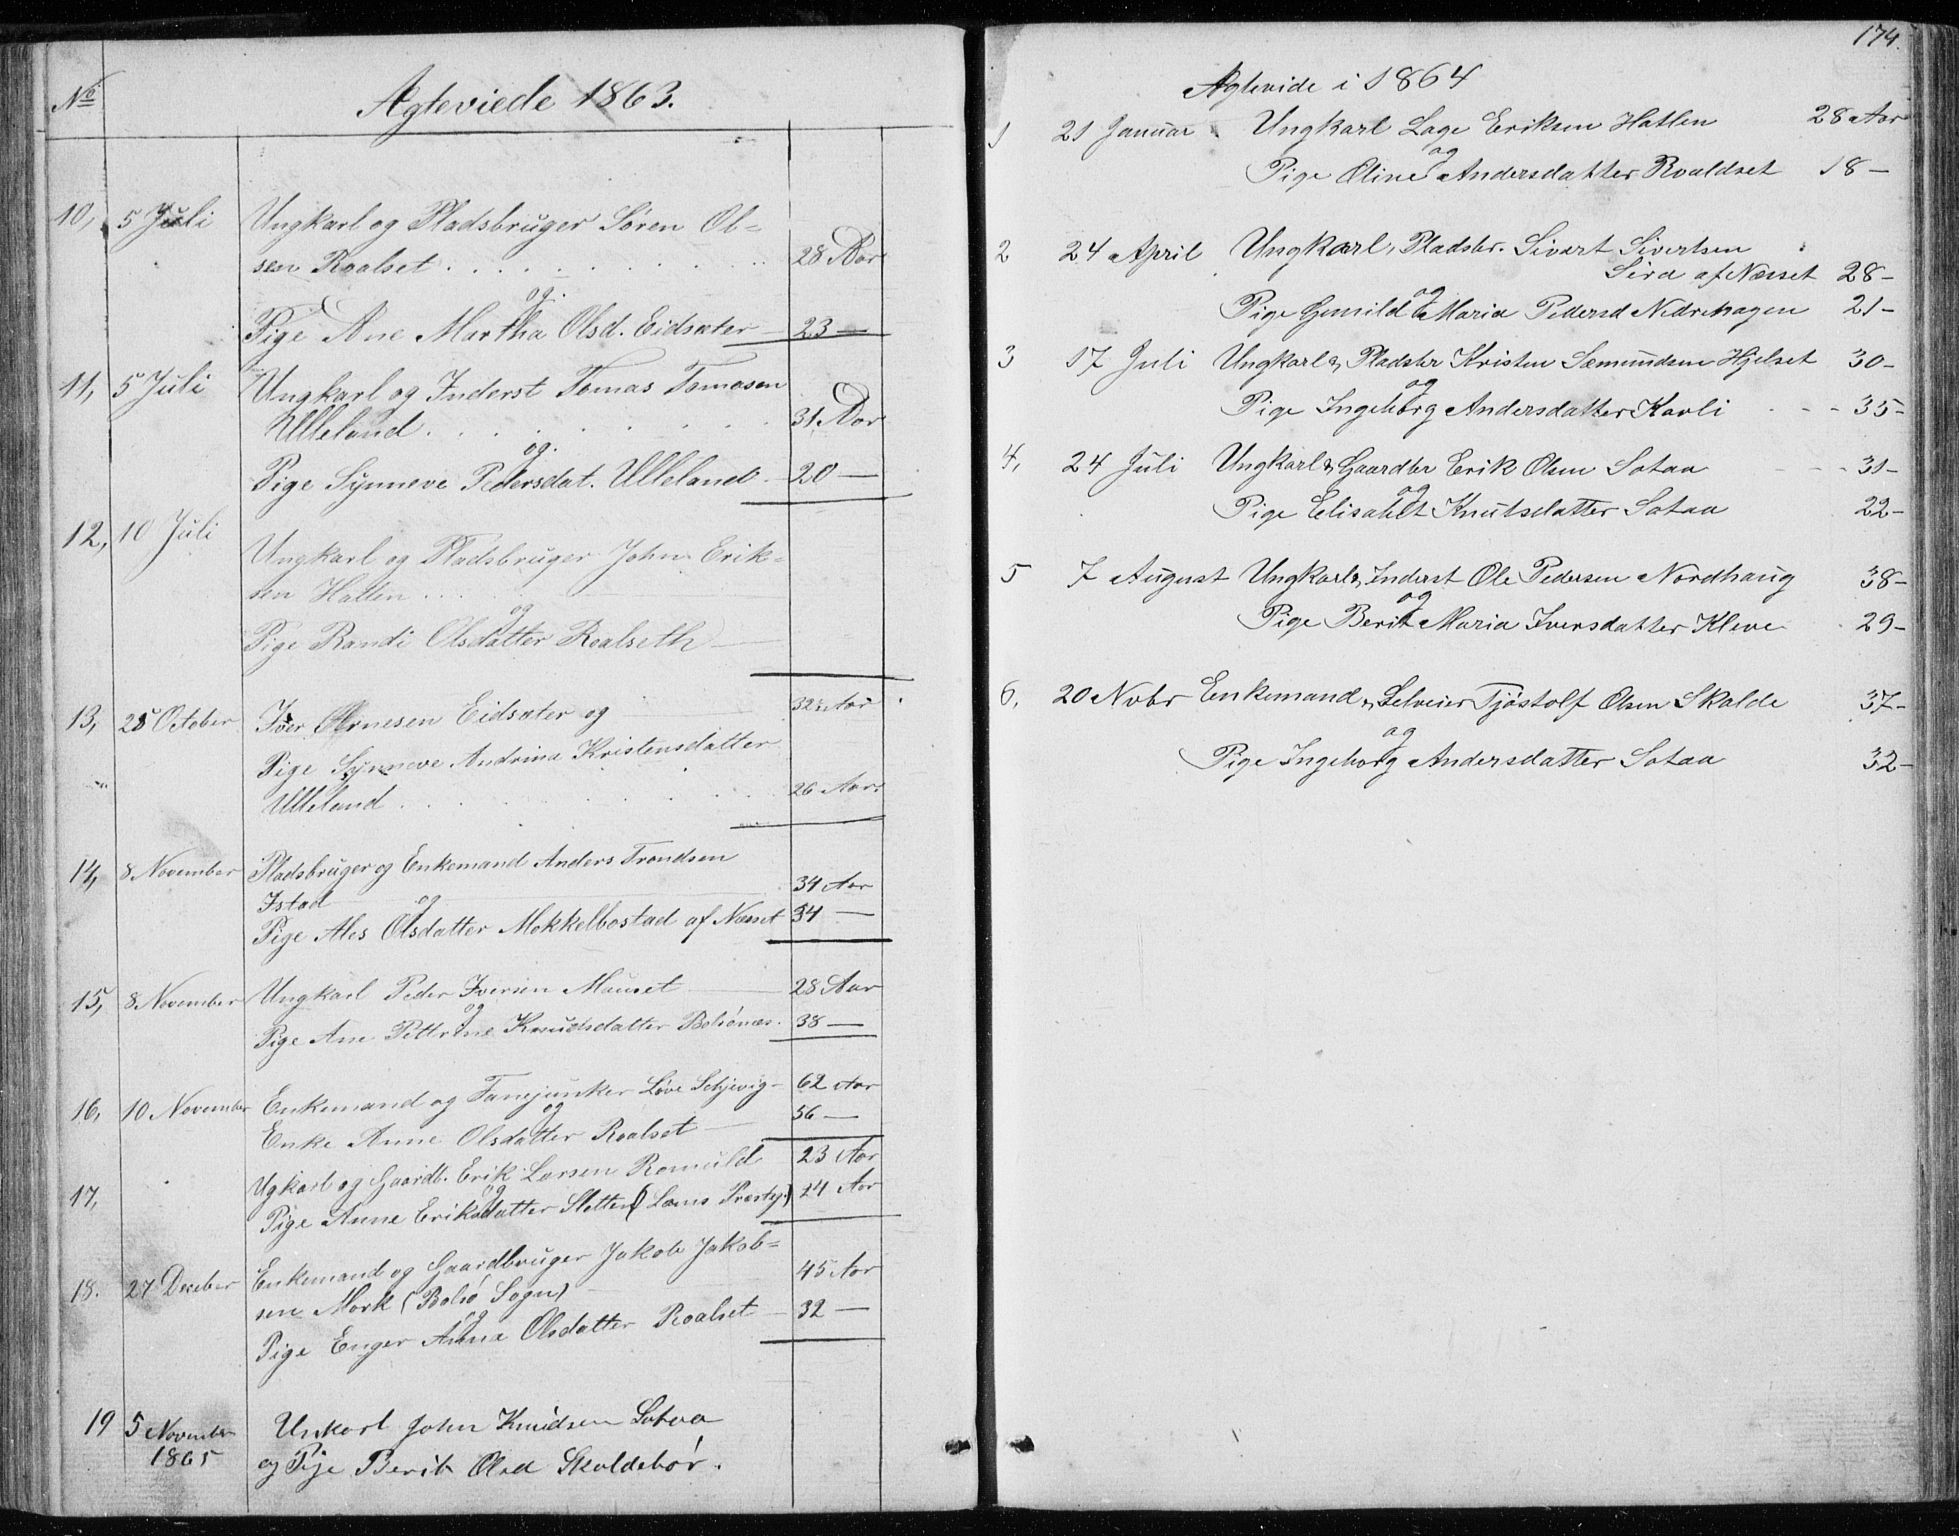 No
Ægteviede 1863.
10, 5 Juli Ungkarl og Pladsbruger Sören Ol=
sen Roalset . . . . . . . . . 28 Aar
og.
Pige Ane Martha Olsd. Eidsæter 23 —
11, 5 Juli Ungkarl og Inderst Tomas Tomasen
Ulleland . . . . . . . . 31 Aar
og.
Pige Synneve Pedersdat. Ulleland 20 —
12, 10 Juli
Ungkarl og Pladsbruger John Erik=
sen Hatlen . . .
og
Pige Randi Olsdatter Roalseth —
13, 25 October Iver Eidsæter og 32 Aar
Pige Synneve Andrina Kristensdatter
Ulleland . . . . . . . 26 Aar.
14, 8 November Pladsbruger og Enkemand Anders Trondsen
Istad 34 Aar
og
Pige Ales Olsdatter Mekkelbostad af Næsset 34 —
15, 8 November Ungkarl Peder Iversen Mauset 28 Aar
og
Pige Ane Pettrine Knudsdatter Bolsönæs. 38 —
16, 10 November Enkemand og Fanejunker Löve Schjevig 62 Aar
og 56 —
Enke Anne Olsdatter Roalset
17, Ugkarl og Gaardb. Erik Larsen Romuld 23 Aar
og
Pige Anne Eriksdatter Sletten (Loms Præstegj.) 24 Aar
18. 27 Deceber Enkemand og Gaardbruger Jakob Jakob=
sen Mork (Bolsö Sogn) 45 Aar
og
Pige Enger Anna Olsdatter Roalset 32 —
19 5 November
1865 Unkarl John Knudsen Sotaa
og Pije Berit Olsd Skoldebör.
174.
Ægtevide i 1864
1 21 Januar Ungkarl Lage Eriksen Hatlen 28 Aar
og
Pige Oline Andersdatter Roaldset 18 —
2 24 April Ungkarl, Pladsbr. Sivert Sivertsen
Sira af Næsset 28 —
og
Pige Gunild Maria Pedersd Nedrehagen 21 —
3 17 Juli Ungkarl & Pladsbr Kristen Sæmundsen Hjelset 30 —
og
Pige Ingeborg Andersdatter Kavli - - - 35 -
4, 24 Juli Ungkarl & Gaardbr Erik Olsen Sotaa - - - 31 —
og
Pige Elisabet Knutsdatter Sotaa 22 —
5 7 August Ungkarl & Inderst Ole Pedersen Nordhaug 38 —
og
Pige Berit Maria Iversdatter Kleve 29 —
6, 20 Nvbr Enkemand & Selveier Tjöstolf Olsen Skalde 37 —
og
Pige Ingeborg Andersdatter Sotaa 32 —